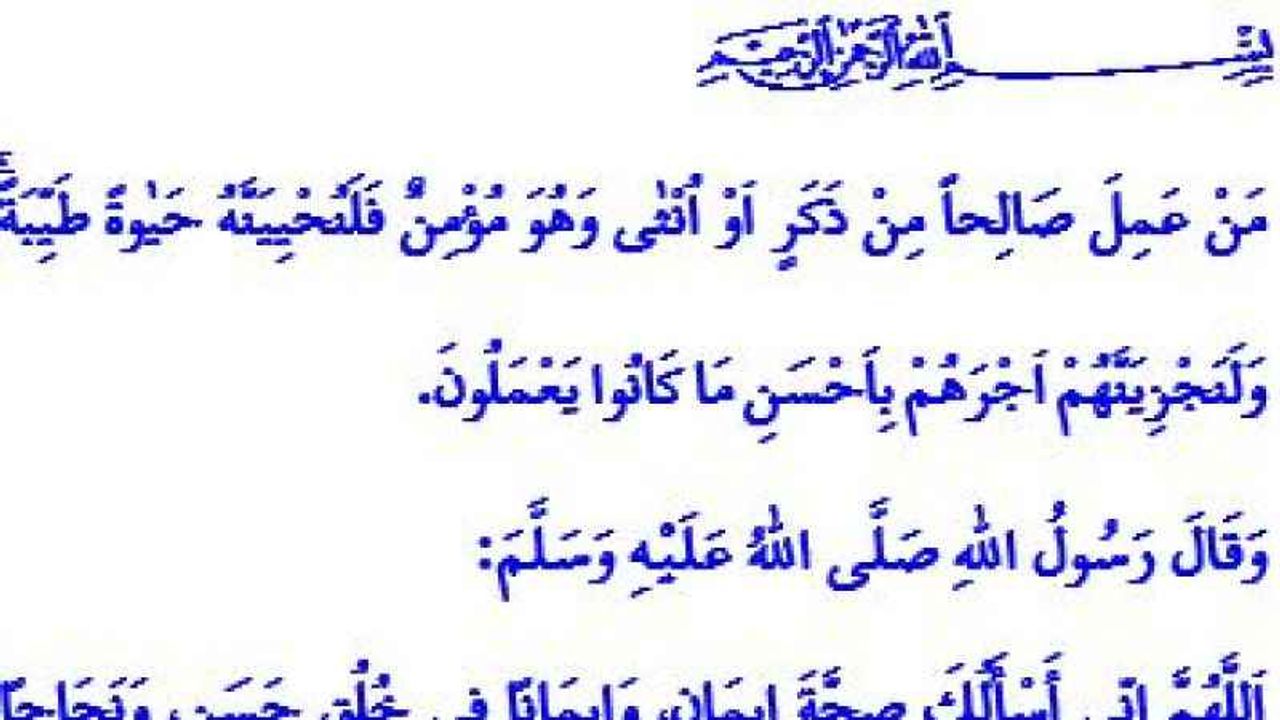 بِسْمِ اللهِ الرَّحْمٰنِ الرَّحِيمِ
مَنْ عَمِلَ صَالِحاً مِنْ ذَكَرٍ اَوْ اُنْثٰى وَهُوَ مُؤْمِنٌ فَلَنُحْيِيَنَّهُ حَيٰوةً طَيِّبَةً
وَلَنَجْزِيَنَّهُمْ اَجْرَهُمْ بِاَحْسَنِ مَا كَانُوا يَعْمَلُونَ.
وَقَالَ رَسُولُ اللهِ صَلَّى اللهُ عَلَيْهِ وَسَلَّمَ:
اَللَّهُمَّ اِنِّي أَسْأَلُكَ صِحَّةَ إِيمَانٍ، وَإِيمَانًا فِي خُلُقٍ حَسَنٍ، وَنَجَاحًا